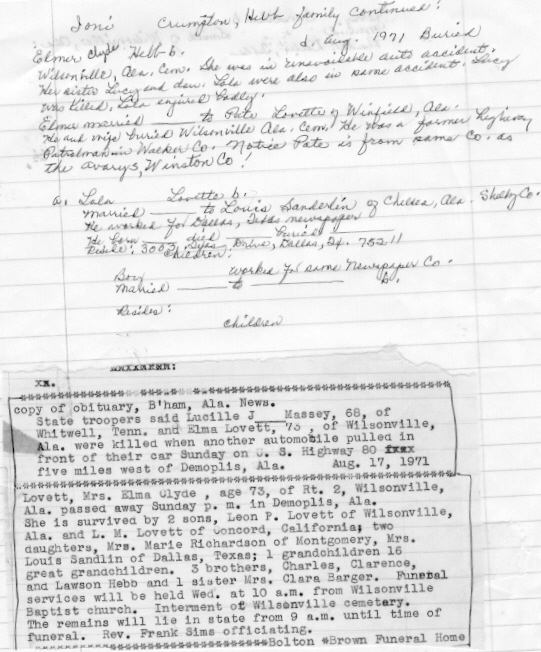 Joni Crumpton, Hebb family Continued:
Elmer Clyde Hebb-b. d. Aug. 1971 Buried
Wilsonville, Ala. Cem. She was in unavoidable auto accident.
Her sister Lucy and dau. Lola were also in same accident. Lucy
was killed, Lola enjured badly.
Elmer married to Pate Lovette of Winfield, Ala.
He and wife buried Wilsonville Ala. Cem. He was a former Highway
Patrolman in Walker Co. Notice Pate is from same Co. as
the Avarys, Winston Co!
a. Lola Lovette b.
married to Louis Sanderlin of Chelsea, Ala. Shelby Co.
He worked for Dallas, Texas newspaper
He born died buried
Reside: 3003 Drive, Dallas, 75211
Children:
Boy worked for same Newspaper Co.
Married to b.
Resides:
Children
xx.
copy of obituary, B'ham, Ala. News.
State troopers said Lucille J Massey, 68, of
Whitwell, Tenn. and Elma Lovett, 73 , of Wilsonville,
Ala. were killed when another automobile pulled in
front of their car Sunday on U. S. Highway 80
five miles west of Demoplis, Ala. Aug. 17, 1971
Lovett, Mrs. Elma Clyde , age 73, of Rt. 2, Wilsonville,
Ala. passed away Sunday p. m. in Demoplis, Ala.
She is survived by 2 sons, Leon P. Lovett of Wilsonville,
Ala. and L. M. Lovett of Concord, California; two
daughters, Mrs. Marie Richardson of Montgomery, Mrs.
Louis Sandlin of Dallas, Texas; 1 grandchildren 16
great grandchildren. 3 brothers, Charles, Clarence,
and Lawson Hebb and 1 sister Mrs. Clara Barger. Funeral
services will be held Wed. at 10 a.m. from Wilsonville
Baptist church. Interment of Wilsonville cemetary.
The remains will lie in state from 9 a.m. until time of
funeral. Rev. Frank Sims officiating.
Bolton *Brown Funeral Home